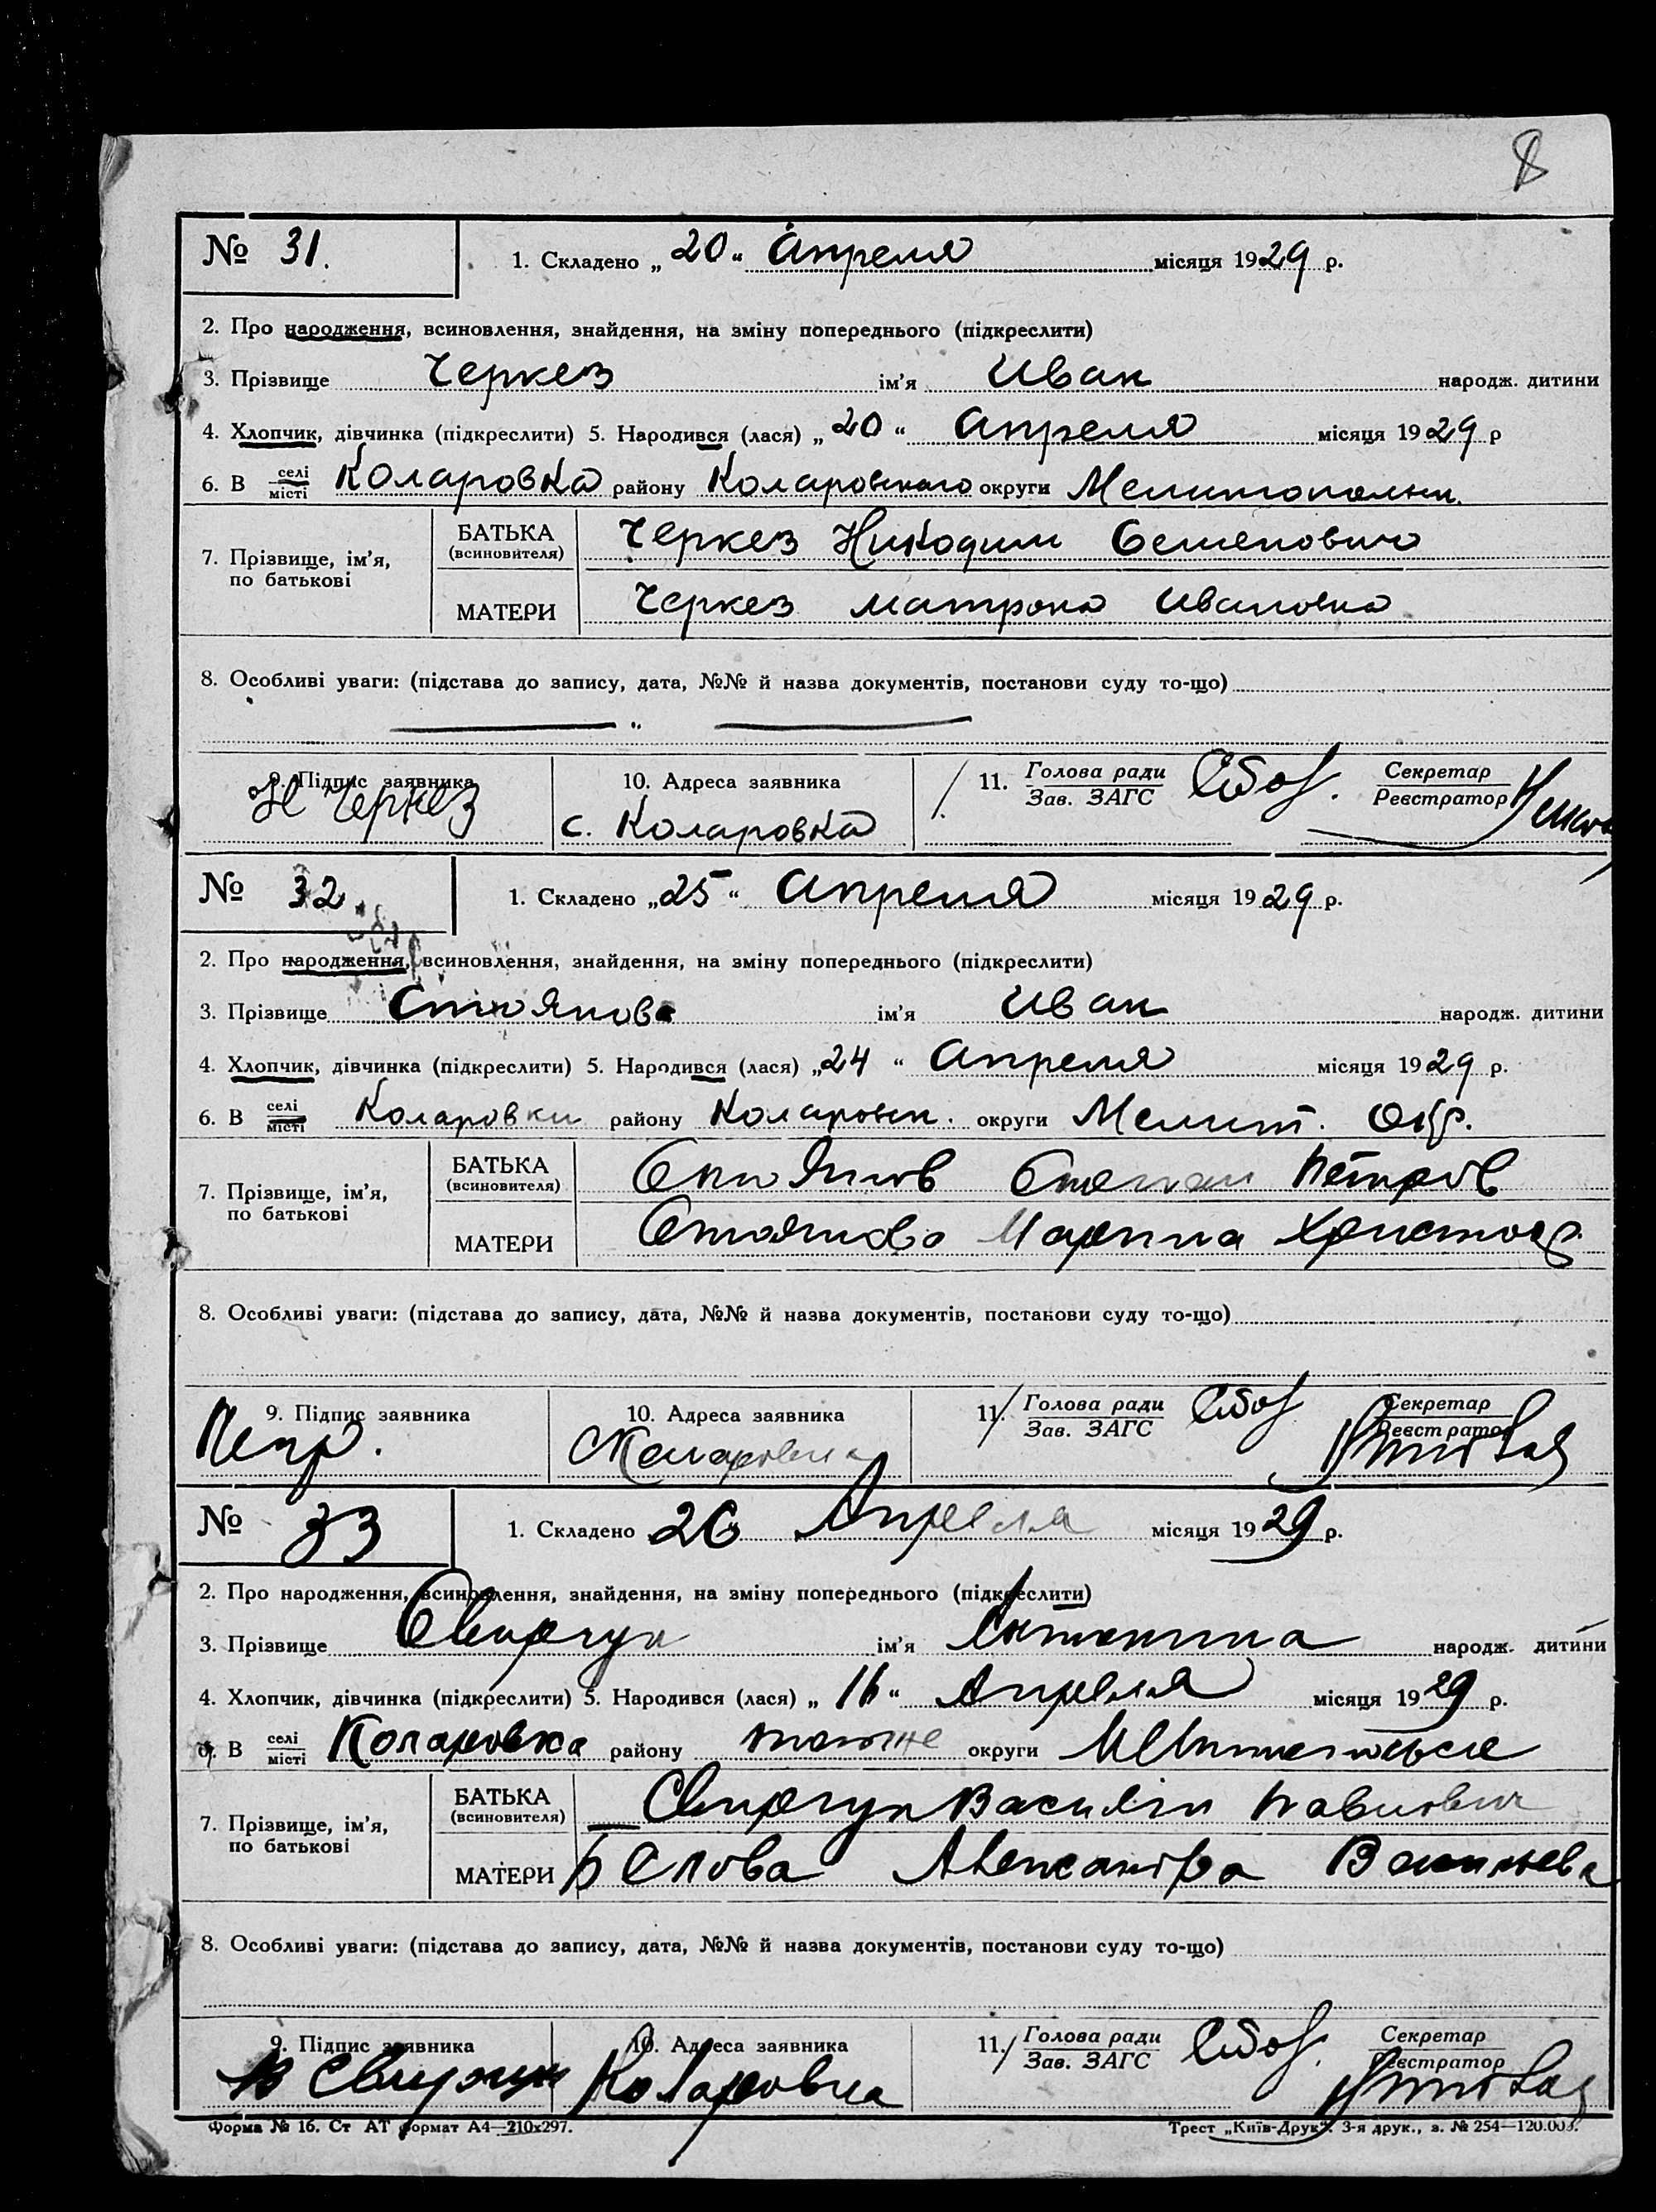 8
№ 31.
1. Складено „20“ Апреля місяця 1929 р.
2. Про народження, всиновлення, знайдення, на зміну попереднього (підкреслити)
3. Прізвище Черкез ім'я Иван народж. дитини
4. Хлопчик, дівчинка (підкреслити) 5. Народився (лася) „20“ Апреля місяця 1929 р
6. В селі місті Коларовка району Коларовского округи Мелитопольск.
7. Прізвище, ім'я, по батькові
БАТЬКА (всиновителя) Черкез Никодим Семенович
МАТЕРИ Черкез Матрона Ивановна
8. Особливі уваги: (підстава до запису, дата, №№ й назва документів, постанови суду то-що)
— „ —
9. Підпис заявника Н Черкез
10. Адреса заявника с. Коларовка
11. Голова ради Зав. ЗАГС
Секретар Реєстратор
№ 32.
1. Складено „25“ Апреля місяця 1929 р.
2. Про народження, всиновлення, знайдення, на зміну попереднього (підкреслити)
3. Прізвище Стоянов ім'я Иван народж. дитини
4. Хлопчик, дівчинка (підкреслити) 5. Народився (лася) „24“ Апреля місяця 1929 р.
6. В селі місті Коларовки району Коларовск. округи Мелит. Окр.
7. Прізвище, ім'я, по батькові
БАТЬКА (всиновителя) Стоянов Степан Петров
МАТЕРИ Стоянова Марина Христофор.
8. Особливі уваги: (підстава до запису, дата, №№ й назва документів, постанови суду то-що)
9. Підпис заявника Петр.
10. Адреса заявника с Коларовка
11. Голова ради Зав. ЗАГС
Секретар Реєстратор
№ 33
1. Складено 26 Апреля місяця 1929 р.
2. Про народження, всиновлення, знайдення, на зміну попереднього (підкреслити)
3. Прізвище ім'я Антонина народж. дитини
4. Хлопчик, дівчинка (підкреслити) 5. Народився (лася) „16“ Апреля місяця 1929 р.
6. В селі місті Коларовка району тоже округи
7. Прізвище, ім'я, по батькові
БАТЬКА (всиновителя) Василий Павлович
МАТЕРИ Белова Александра Васильева
8. Особливі уваги: (підстава до запису, дата, №№ й назва документів, постанови суду то-що)
9. Підпис заявника
10. Адреса заявника Коларовка
11. Голова ради Зав. ЗАГС
Секретар Реєстратор
Форма № 16. Ст АТ формат А4—210х297.
Трест „Київ-Друк“. 3-я друк., з. № 254—120.000.